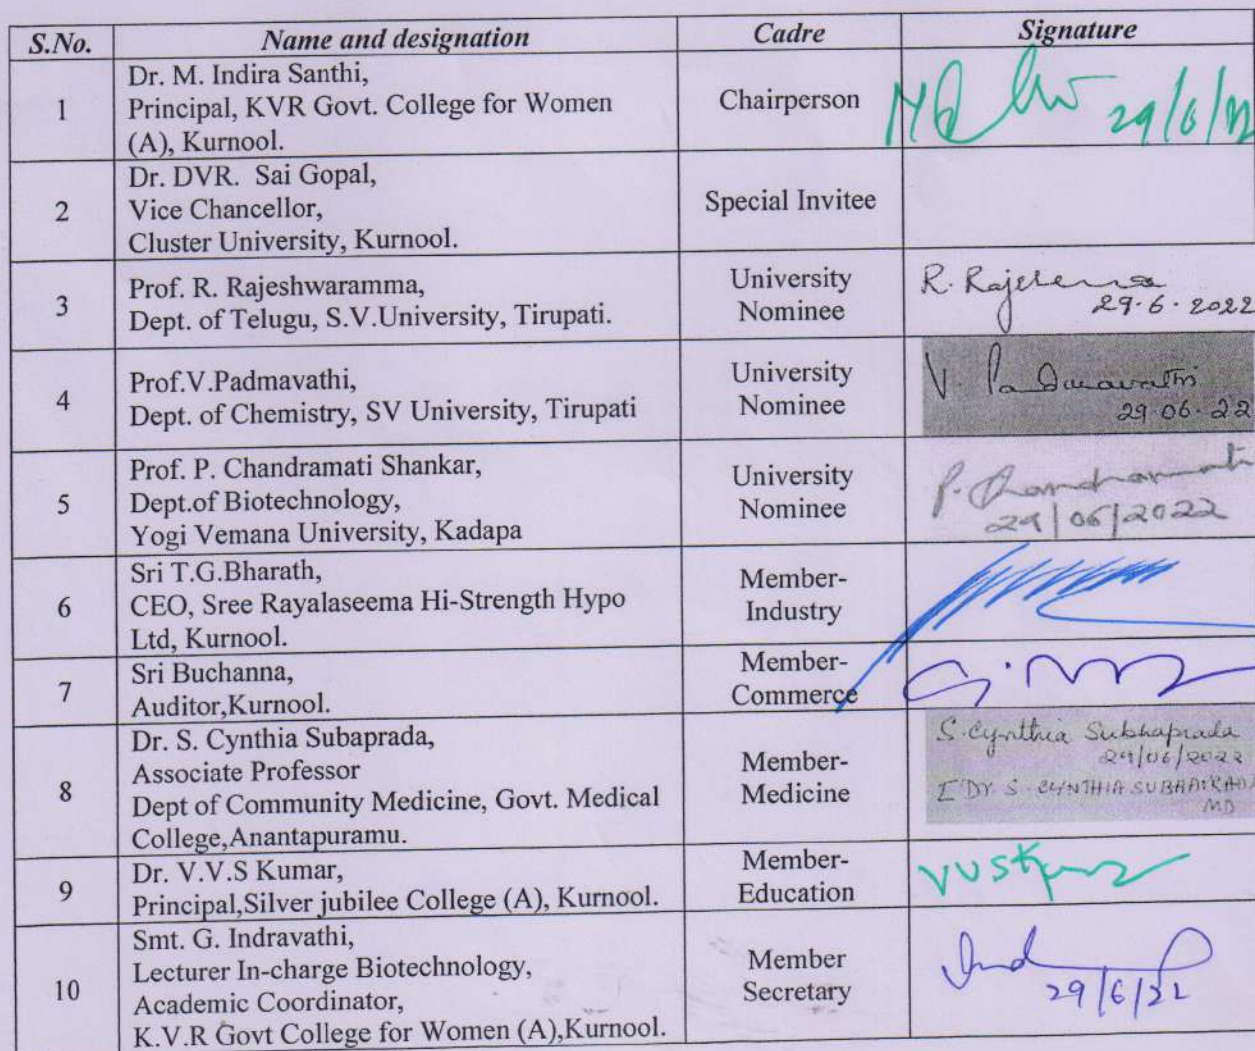 S.No. Name and designation Cadre Signature
1
Dr. M. Indira Santhi,
Principal, KVR Govt. College for Women
(A), Kurnool.
Chairperson
29/6/22
2
Dr. DVR. Sai Gopal,
Vice Chancellor,
Cluster University, Kurnool.
Special Invitee
3
Prof. R. Rajeshwaramma,
Dept. of Telugu, S.V.University, Tirupati.
University
Nominee
R.
29.6.2022
4
Prof.V.Padmavathi,
Dept. of Chemistry, SV University, Tirupati
University
Nominee
V. Padmavathi
29.06.22
5
Prof. P. Chandramati Shankar,
Dept.of Biotechnology,
Yogi Vemana University, Kadapa
University
Nominee
P. Chandramati
29/06/2022
6
Sri T.G.Bharath,
CEO, Sree Rayalaseema Hi-Strength Hypo
Ltd, Kurnool.
Member-
Industry
7
Sri Buchanna,
Auditor,Kurnool.
Member-
Commerce
8
Dr. S. Cynthia Subaprada,
Associate Professor
Dept of Community Medicine, Govt. Medical
College,Anantapuramu.
Member-
Medicine
S.Cynthia Subhaprada
29/06/2022
DY. S. CYNTHIA
MD
9
Dr. V.V.S Kumar,
Principal,Silver jubilee College (A), Kurnool.
Member-
Education
10
Smt. G. Indravathi,
Lecturer In-charge Biotechnology,
Academic Coordinator,
K.V.R Govt College for Women (A),Kurnool.
Member
Secretary
29/6/22